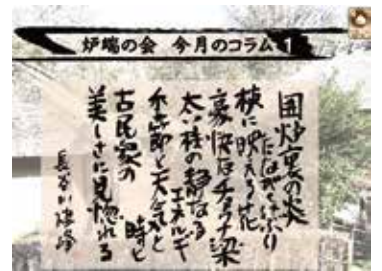 炉端の会 今月のコラム
囲炉裏の炎
たなびくけぶり
槙に映える花
豪快なチョウナ梁
太い柱の静なる
エネルギー
季節と天気と
時と
古民家の
美しさに見惚れる
長谷川